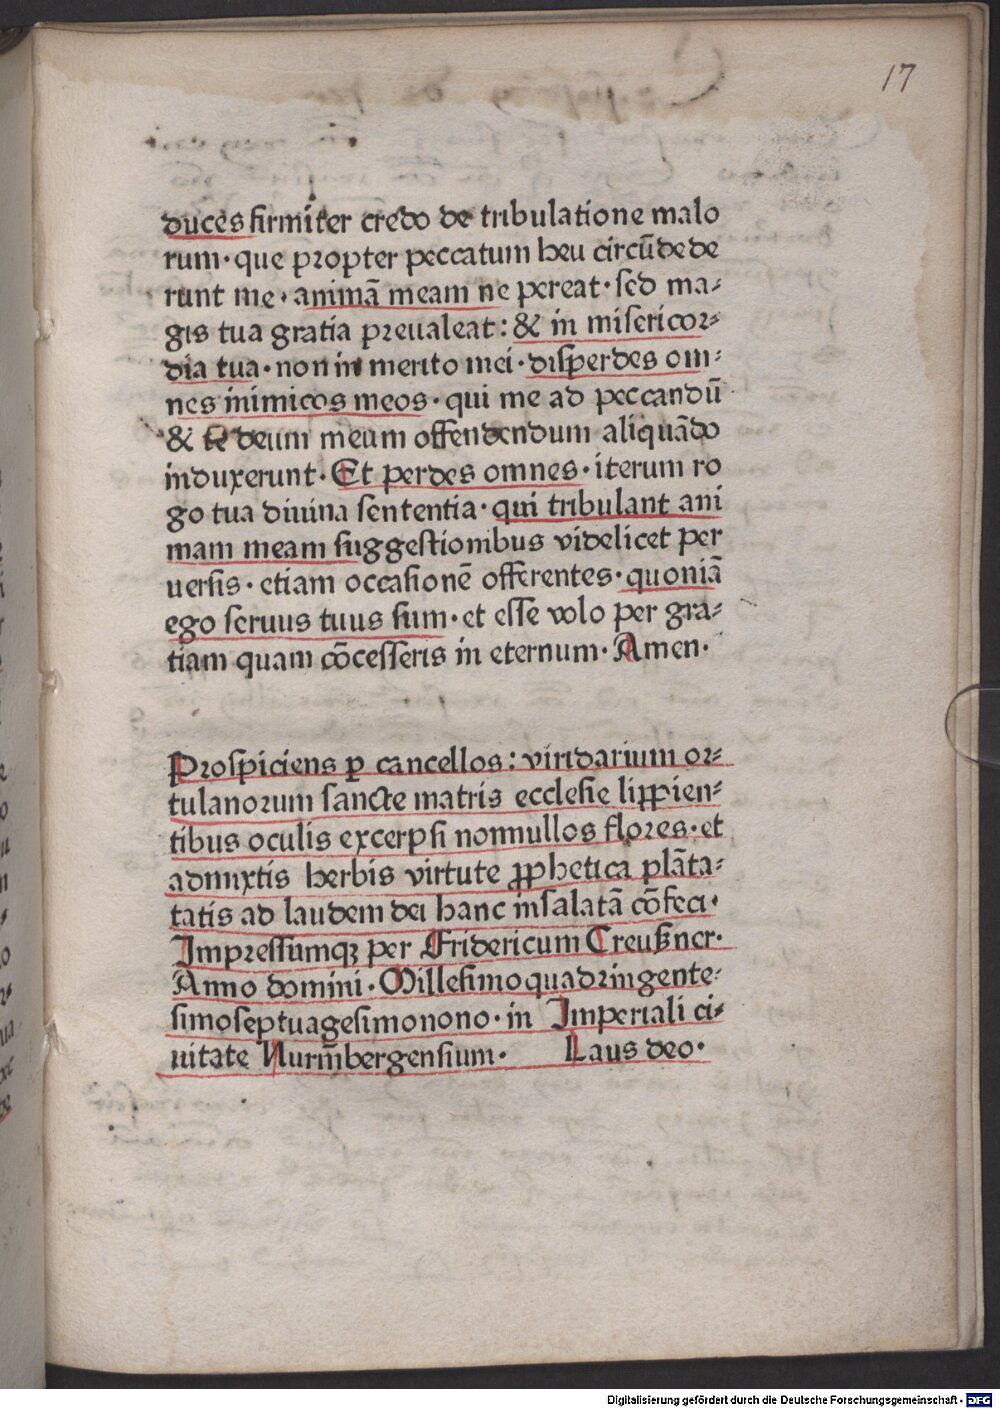 17
duces firmiter credo de tribulatione malo
rum· que propter peccatum heu circū dede
runt me· animā meam ne pereat· sed ma-
gis tua gratia preualeat: & in misericor-
dia tua· non in merito mei· disperdes om-
nes inimicos meos· qui me ad peccandū
& deum meum offendendum aliquādo
induxerunt· Et perdes omnes· iterum ro
go tua diuina sententia· qui tribulant ani
mam meam suggestionibus videlicet per
uersis· etiam occasionē offerentes· quoniā
ego seruus tuus sum· et esse volo per gra-
tiam quam cōcesseris in eternum· Amen·
Prospiciens ꝑ cancellos: viridarium or-
tulanorum sancte matris ecclesie lipꝑien-
tibus oculis excerpsi nonnullos flores· et
admixtis herbis virtute ꝓphetica plāta-
tatis ad laudem dei hanc insalatā cōfeci·
Impressumqꝫ per Fridericum Creußner·
Anno domini· Millesimoquadringente-
simoseptuagesimonono· in Imperiali ci-
uitate Nurm̄bergensium· Laus deo·
Digitalisierung gefördert durch die Deutsche Forschungsgemeinschaft - DFG